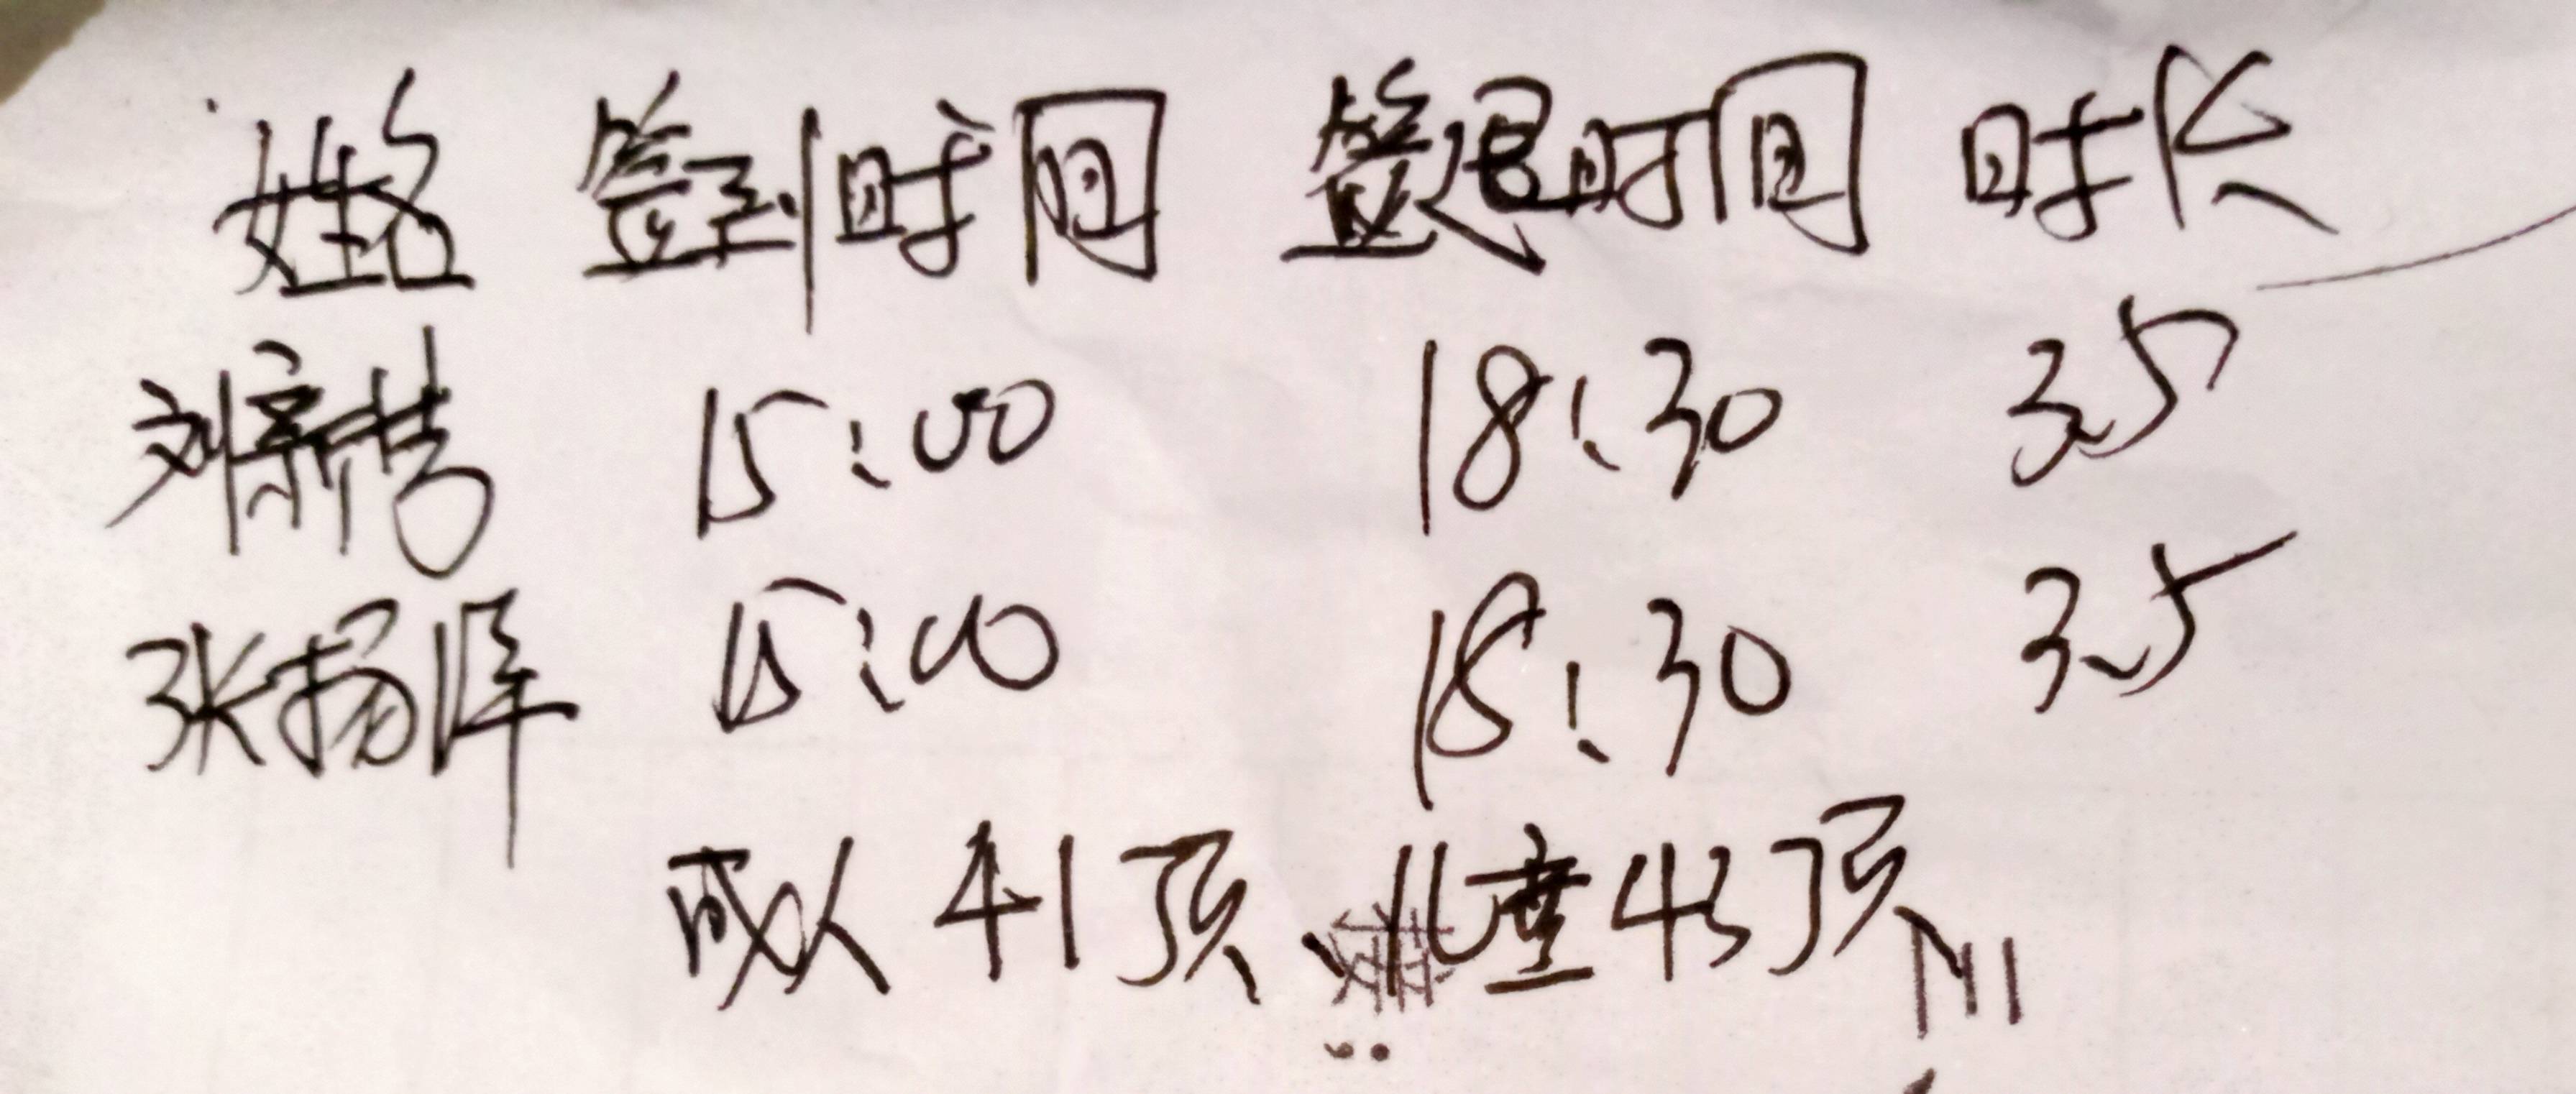 姓名 签到时间 签退时间 时长
刘 15:00 18:30 3.5
张扬 15:00 18:30 3.5
成人41顶、儿童43顶